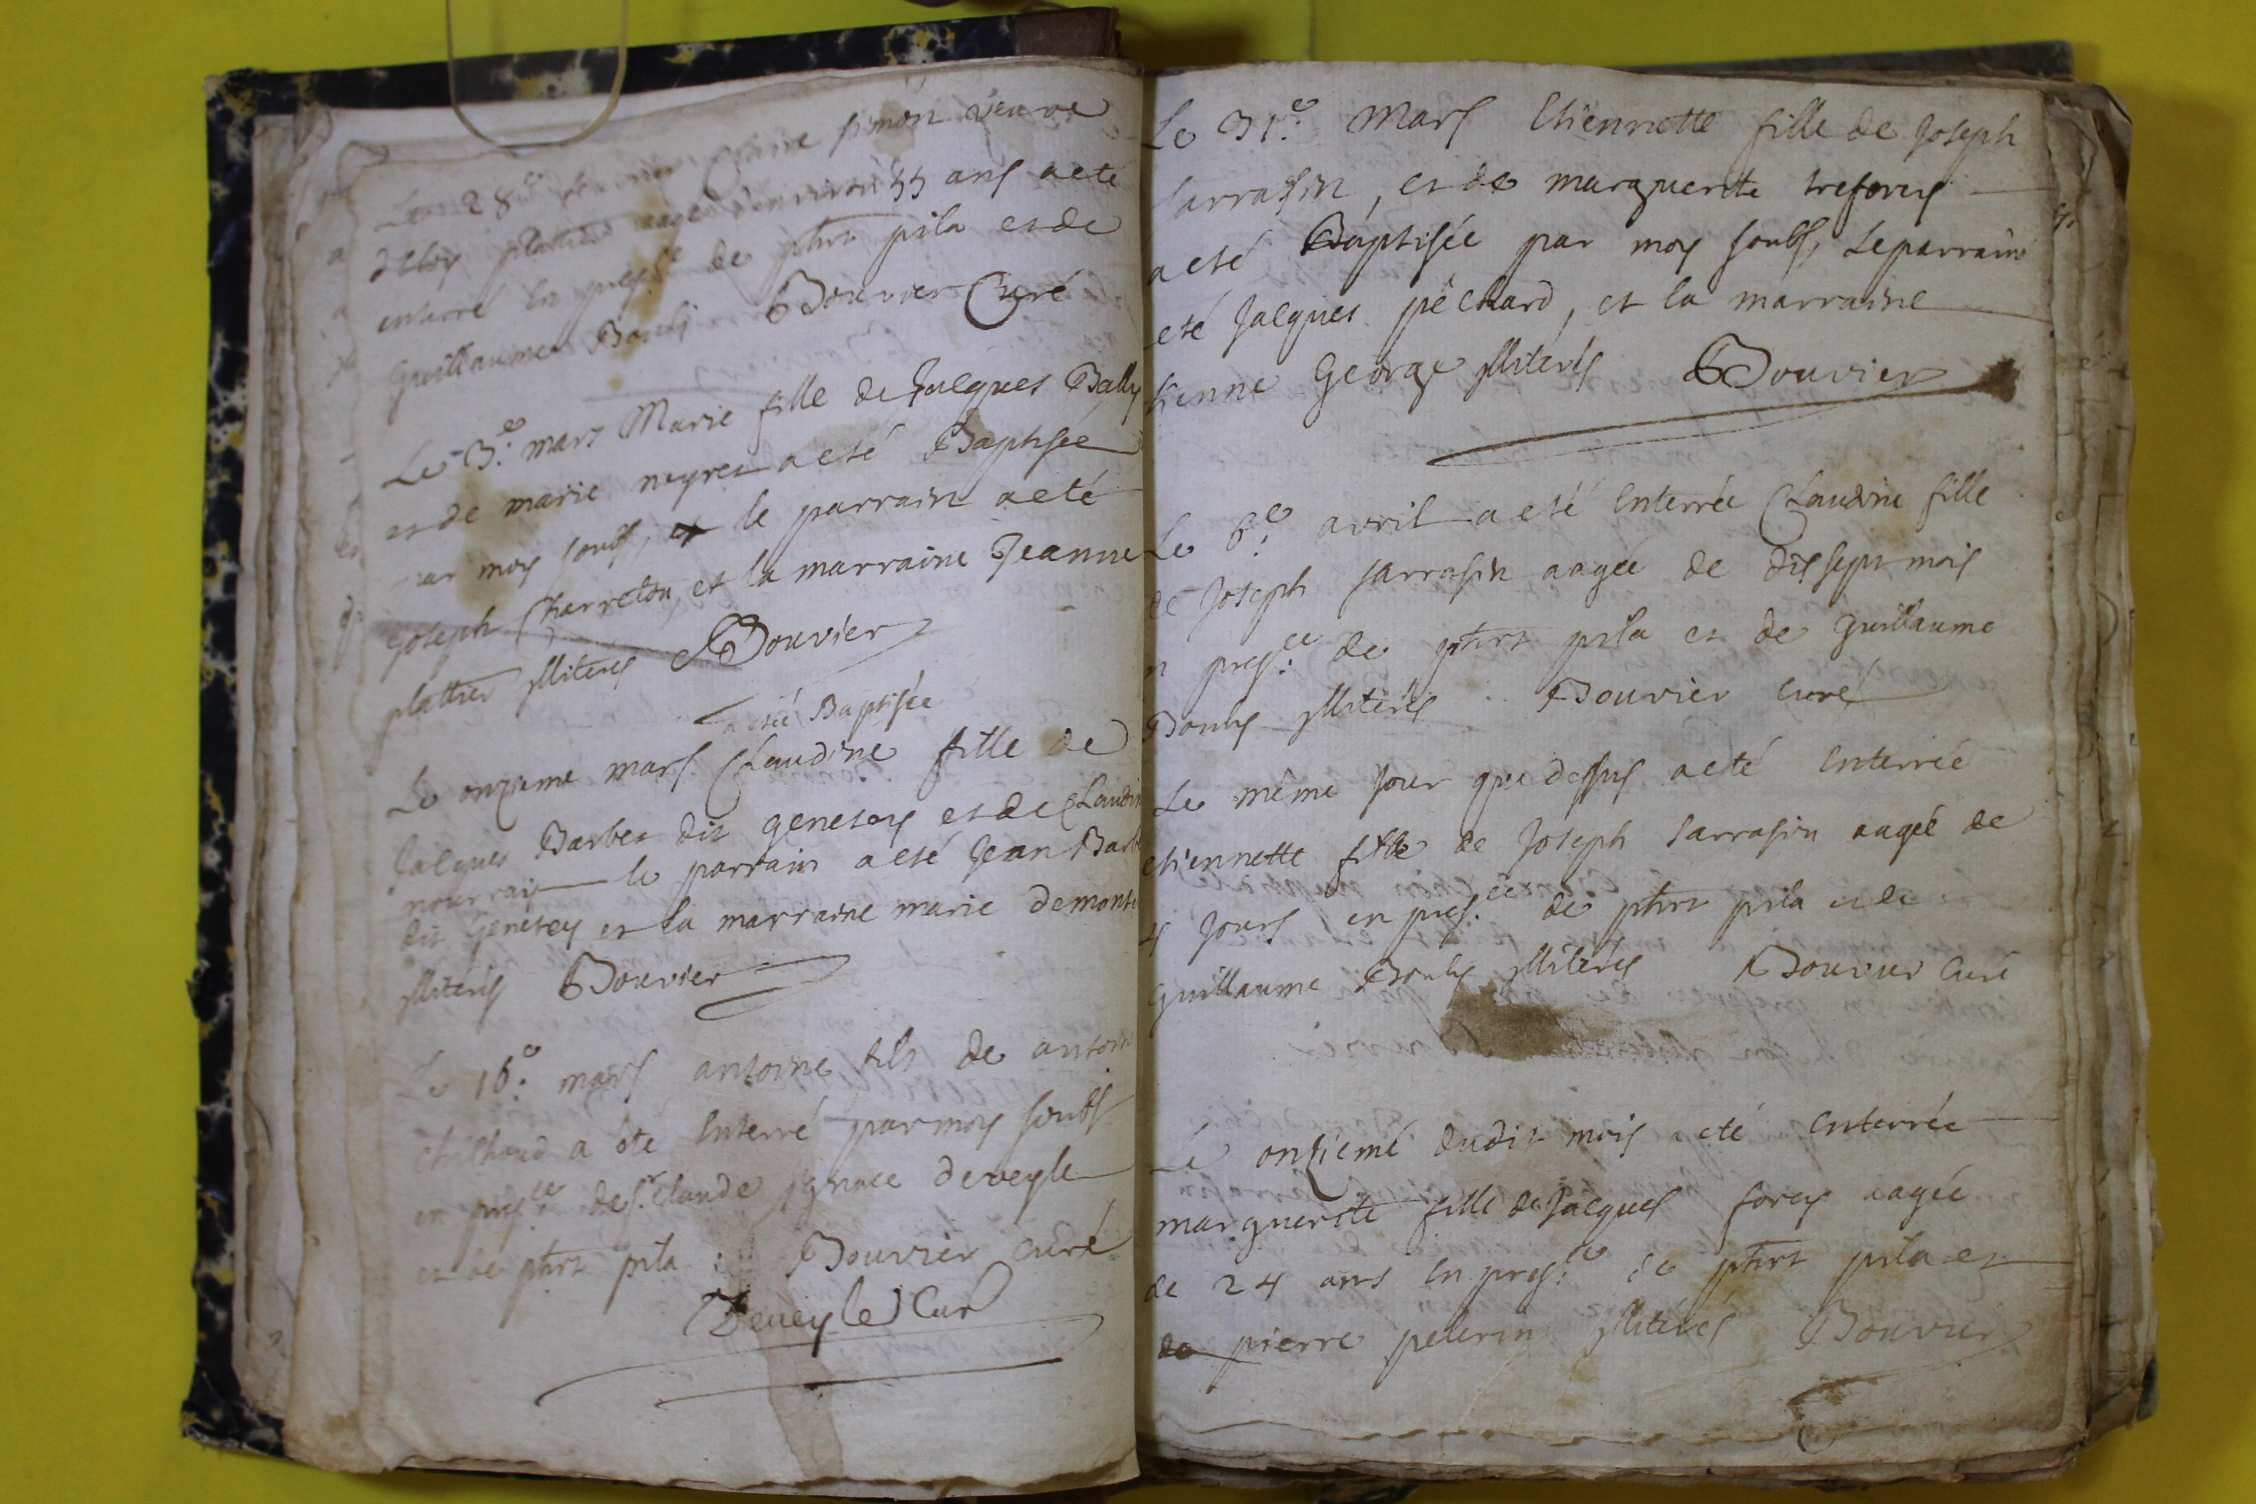 Le 28e fevrier Claire simon veuve
d'Eloy plattier aagée d'environ 55 ans a eté
enterré En presce de phrt pila et de
Guillaume Bouly Bouvier Curé
Le 3e. mars Marie fille de Jacques Bally
et de marie neyret a eté Baptisée
par moy soubs, et le parrain a eté
joseph Charreton, et la marraine Jeanne
plattier jlliterés Bouvier
a eté Baptisée
Le onzieme mars Claudine fille de
Jacques Barbet dit genetey et de Claudin
nourray le parrain a eté Jean Barb
dit Genetey et la marraine marie demont
jlliterés Bouvier
Le 16e. mars antoine fils de antoin
a eté Enterré par moy soubs
en presce. de sr. Claude jgnace deveyle
et de phrt pila : Bouvier curé
Deveyle Curé
Le 31e. Mars Etiennette fille de Joseph
sarrasin, et de marguerite treforey
a eté Baptisée par moy soubs, Le parrain
eté Jacques péchard, et la marraine
tienne George jlliterés Bouvier
Le 6e. avril a eté Enterrée Claudine fille
de Joseph sarrasin aagée de dissept mois
n presce. de phrt pila et de guillaume
Bouly jlliterés Bouvier curé
Le même Jour que dessus a eté Enterrée
etiennette fille de Joseph sarrasin aagée de
4 Jours en presce. de phrt pila et de
Guillaume Bouly jlliterés Bouvier Curé
Le onsiemé dudit mois a eté Enterrée
marguerite fille de Jacques forey aagée
de 24 ans En presce. de phrt pila et
de pierre pelerin jlliterés Bouvier